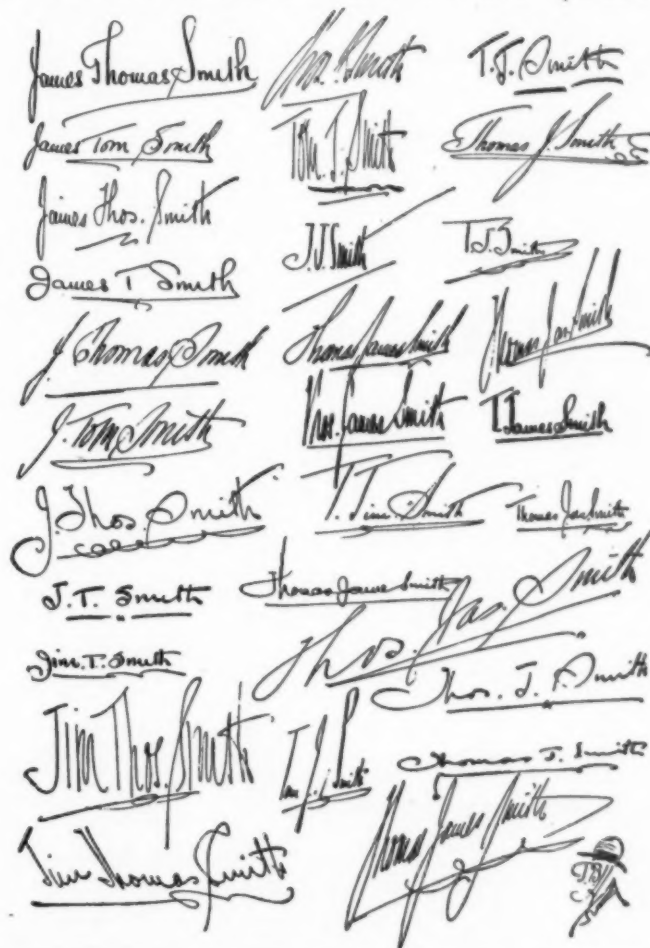 James Thomas Smith
James Tom Smith
James Thos. Smith
James T Smith
J. Thomas Smith
J. Tom Smith
J. Thos. Smith
J. T. Smith
Jim. T. Smith
Jim Thos. Smith
Jim Thomas Smith
Smith
Tom. T. Smith
J. J. Smith
Thomas James Smith
Thos. James Smith
T. Jim. Smith
Thomas James Smith
Thos. Jas. Smith
Tom J. Smith
Thomas James Smith
T. J. Smith
Thomas J. Smith
T. J. Smith
Thomas Jas. Smith
T. James Smith
Thomas Jas. Smith
Thos. J. Smith
Thomas J. Smith